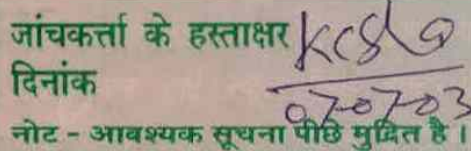 जांचकर्त्ता के हस्ताक्षर
दिनांक 07-07-03
नोट - आवश्यक सूचना पीछे मुद्रित है ।